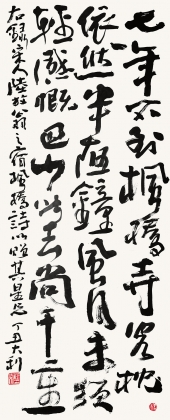 七年不到楓橋寺客枕
依然半夜鐘風月未須
輕感慨巴山此去尚千重
右錄宋人陸放翁之宿楓橋詩以其丁丑大利